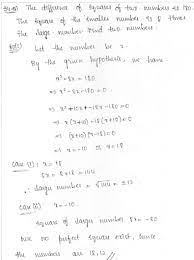 The difference of squares of two numbers is 180.
The square of the smaller number is 8 times
the large number find two numbers.
Let the number be x.
By the given hypothesis, we have
x²-8x=180
⇒ x²-8x-180=0
⇒ x²+10x-18x-180=0
⇒ x(x+10)-18(x+10)=0
⇒ (x+10)(x-18)=0
⇒ x=-10 or x=18
Case (i): x=18
8x=8×18=144
∴ larger number = √144 = ±12
Case (ii) x=-10.
square of larger number 8x=-80
no perfect square exist, hence
the numbers are 18,12